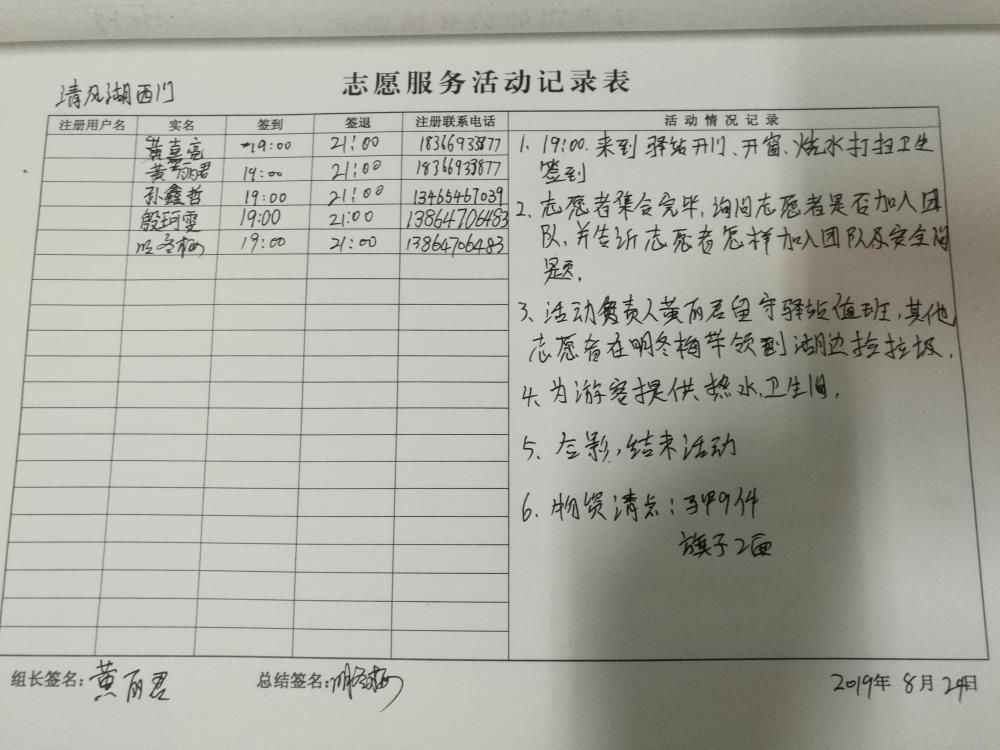 清风湖西门
志愿服务活动记录表
注册用户名 实名 签到 签退 注册联系电话 活动情况记录
黄嘉亮 19:00 21:00 18366933877
黄丽君 19:00 21:00 18366933877
孙鑫哲 19:00 21:00 13465467039
殷珂雯 19:00 21:00 13864706483
明冬梅 19:00 21:00 13864706483
1. 19:00. 来到驿站开门、开窗、烧水打扫卫生
签到
2. 志愿者集合完毕,询问志愿者是否加入团
队,并告诉志愿者怎样加入团队及安全问
题.
3、活动负责人黄丽君留守驿站值班,其他
志愿者在明冬梅带领到湖边捡垃圾.
4、为游客提供热水、卫生间.
5、合影,结束活动
6、物资清点:马甲9件
旗子2面
组长签名:黄丽君 总结签名:明冬梅 2019年 8月 24日